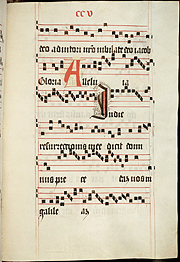 CC V
deo adiutori nr̄o iubilate deo iacob
Gloria Allelu ia
In die
resurrectionis mee dicit domi
nus pre ce dā vos in
galile aā